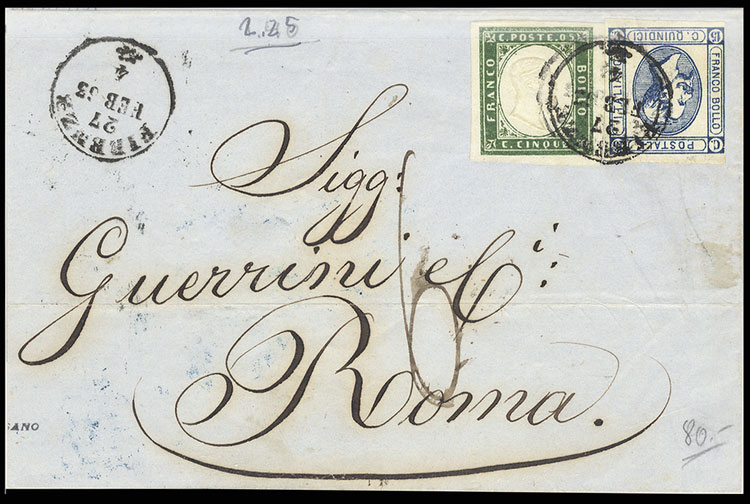 2.25
FIRENZE
27
FEB 63
4
C. POSTE. 05
FRANCO
BOLLO
C. CINQUE
15
C. QUINDICI
FRANCO BOLLO
POSTALE
ITALIANO
C.
Sigg:
Guerrini e Ci:
Roma.
SANO
80.-